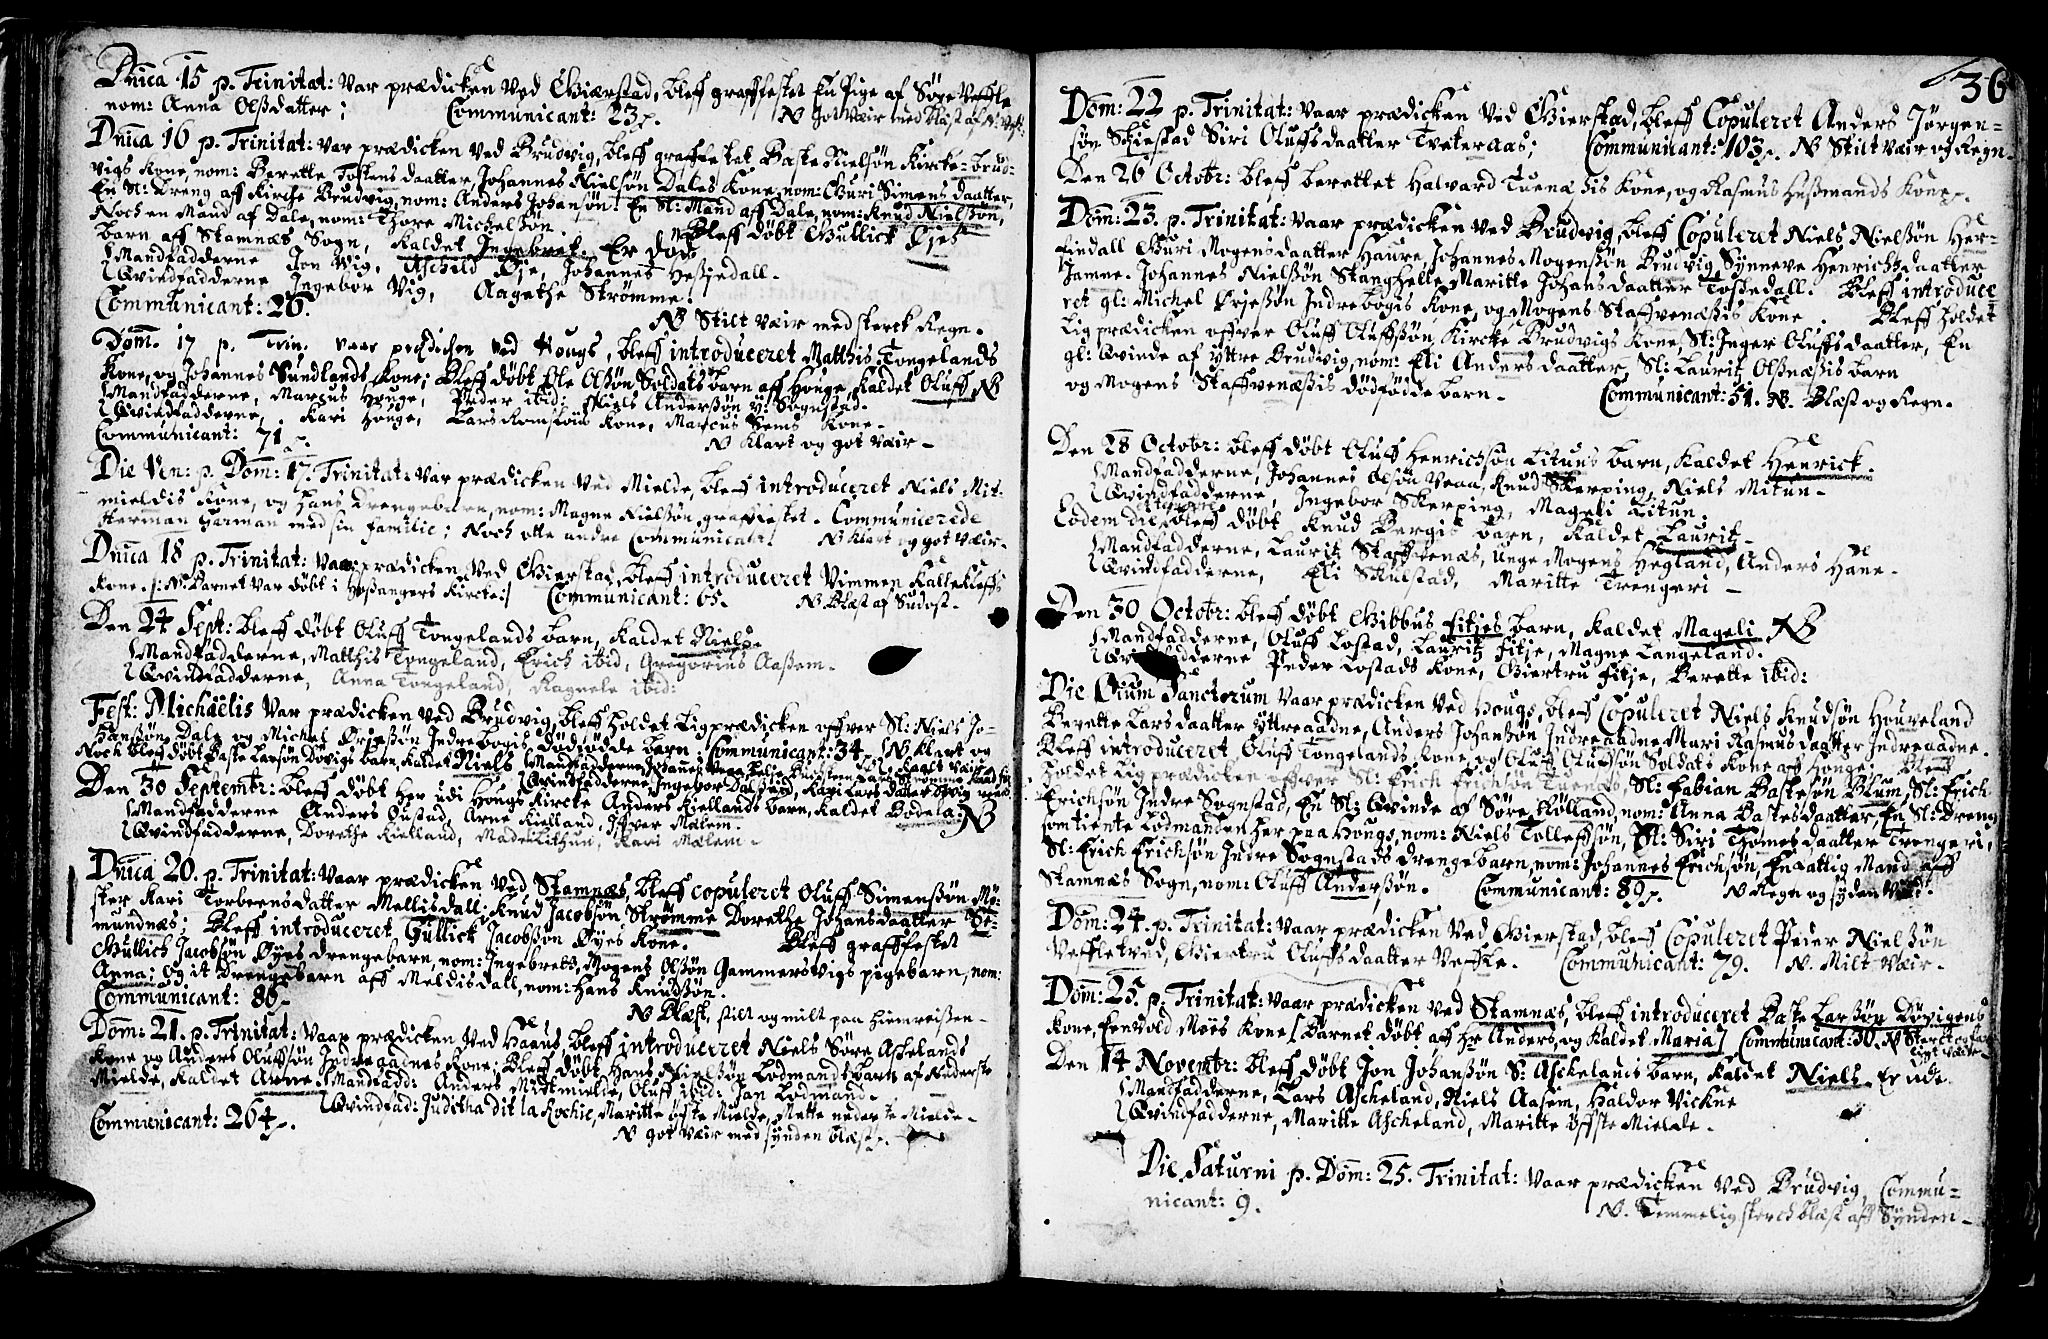 Dnica 15 p. Trinitat: var prædicken ved Gierstad, bleff graffestet En Pige af Søre Veffle
nom: Anna Olssdatter; Communicant: 23. NB Got Væir med blæst af N. Vest.
Dnica 16 p. Trinitat: var prædicken ved Brudvig, bleff graffestet Baste Nielsøn Kircke-Brud-
vigs Kone, nom: Berette Tostensdaatter, Johannes Nielsøn Dales Kone, nom: Guri Simens daatter,
En Sl: Dreng aff Kirche Brudvig, nom: Anders Johansøn. En Sl: Mand aff Dale, nom: Knud Nielssøn,
Noch en Mand af Dale, nom: Thore Michelsøn. Bleff døbt Gullick Øjes
barn aff Stamnæs Sogn, Kaldet Ingebret. Er død
Mandfadderne Jon Vig, Aschild Øje, Johannes Hessiedall.
Qvindfadderne Ingebor Vig, Aagethe Strømme.
Communicant: 26.
NB Stilt Væir med sterck Regn.
Dom. 17 p. Trin. vaar prædichen ved Hougs, bleff introduceret Matthis Tongelands
Kone, og Johannes Sundlands Kone; Bleff døbt Ole Olssøn Soldats barn aff Houge, Kaldet Oluff NB
Mandfadderne, Marcus Houge, Peder ibid: Niels Anderssøn Y: Sognstad.
Qvindfadderne, Kari Houge, Lars Romsloes Kone, Marcus Hems Kone.
Communicant: 71. NB Klart og got Væir
Die Ven: p. Dom: 17. Trinitat: var prædicken ved Mielde, bleff introduceret Niels Mit-
mieldis Kone, og Hans Drengebarn, nom: Magne Nielssøn graffestet. Communicerede
Herman Garman med sin familie; Noch otte andre Communicant. N Klart og got Væir
Dnica 18 p. Trinitat: Vaar prædicken ved Gierstad, bleff introduceret Vimmen Kalleklefs
Kone. /: N: Barnet var døbt i Hossangers Kircke:/ Communicant: 65. N Blæst af Sudost.
Den 24 Sept: bleff døbt Oluff Tongelands barn, Kaldet Niels.
Mandfadderne, Matthis Tongeland, Erich ibid, Gregorius Aassem.
Qvindfadderne, Anna Tongeland, Ragnele ibid:
Fest: Michäelis Var prædicken ved Brudvig, bleff holdet Ligprædicken offver Sl: Niels Jo-
hanssøn Dale og Michel Ørjessøn Indrebogis dødfødde barn; Communicant: 34. N Klart og
Noch bleff døbt Baste Larsøn Døvigs barn, Kaldet Niels
Den 30 Septembr: bleff døbt her udi Hougs Kircke Anders Kiellands barn, Kaldet Bodela: NB
Mandfadderne Anders Oustad, Arne Kielland, Iffver Mælem.
Qvindfadderne, Dorethe Kielland, Made Lithun, Kari Mælem.
Dnica 20. p. Trinitat: Vaar prædicken ved Stamnæs, bleff copuleret Oluff Simenssøn Mø-
ster Kari Torbernsdatter Mellisdall; Knud Jacobsøn Strømme Dorethe Johansdaatter St-
mundnæs; Bleff introduceret Gullick Jacobssøn Øyes Kone. Bleff graffestet
Gullich Jacobsøn Øyes drengebarn, nom: Ingebrett, Mogens Olssøn Gammersvigs pigebarn, nom:
Anna; Og it drengebarn aff Meldisdall, nom: Hans Knudssøn.
Communicant: 86.
N Blæst, stilt og milt paa hiemreissen
Dom: 21. p. Trinitat: Vaar prædicken ved Haaus, bleff introduceret Niels Søre Aschelands
Kone og Anders Oluffsøn Indre Gadnes Kone; Bleff døbt Hans Nielssøn Lodmands barn af Nederste
Mielde, Kaldet Arne. Mandfadd: Anders Mitmielde, Oluff ibid: Jan Lodmand.
Qvindfad: Juditha dit la Rochie, Maritte øfste Mielde, Mette nederste Mielde.
Communicant: 264.
N got Væir med synden blæst.
36
Dom: 22 p. Trinitat: vaar prædicken ved Gierstad, bleff Copuleret Anders Jørgen-
søn Skiestad Siri Oluffsdaatter Tveteraas; Communicant: 103. NB Stilt Væir og Regn
Den 26 Octobr: bleff berettet Halvard Tuenæssis Kone, og Rasmus Hussmands Kone.
Dom: 23. p. Trinitat: Vaar prædicken ved Brudvig, bleff Copuleret Niels Nielssøn Her-
findall Guri Mogensdaatter Haure, Johannes Mogenssøn Brudvig Synneve Henrichsdaatter
Jamne. Johannes Nielssøn Stanghelle Maritte Johansdaatter Tossedall. Bleff introduce-
ret gl: Michel Ørjessøn Indre bogis Kone, og Mogens Staffvenæssis Kone. Bleff holdet
Ligprædicken offver Oluff Oluffssøn Kircke Brudvigs Kone, Sl: Inger Oluffsdaatter, En
gl: Qvinde af yttre Brudvig, nom: Eli Andersdaatter, Sl: Lauritz Olssnæssis barn
og Mogens Staffvenæssis dødfødde barn. Communicant: 51. NB. Blæst og Regn.
Den 28 Octobr: bleff døbt Oluff Henrichsøn Lituns barn, Kaldet Henrick.
Mandfadderne, Johannes Olsøn Veaa, Knud Skerping, Niels Mitun.
Qvindfadderne, Ingebor Skerping, Mageli Litun.
Eodem die, bleff døbt Knud Bergis barn, Kaldet Lauritz
Mandfadderne, Lauritz Staffvenæs, Unge Mogens Hegland, Anders Hane.
Qvindfadderne, Eli Skulstad, Maritte Trengeri
Den 30 Octobr: bleff døbt Gibbus Fitjes barn, Kaldet Mageli NB
Mandfadderne, Oluff Lostad, Lauritz Fitje, Magne Langeland.
Qvindfadderne Peder Lostads Kone, Giertru Fitje, Berette ibid:
Die Oium Sanctorum Vaar prædicken ved Hougs, bleff Copuleret Niels Knudsøn Houveland
Berette Larsdaatter yttreaadne, Anders Johanssøn Indreaadne, Mari Rasmusdaatter Indreaadne.
Bleff introduceret Oluff Tongelands Kone, og Oluff Olufsøn Soldats Kone aff Houge; Bleff
holdet Ligprædicken offver Sl: Erich Erichsøn Tuenæs, Sl: Fabian Bastesøn Blum, Sl: Erich
Erichsøn Indre Sognstad, En Sl: Qvinde af Søre Rølland, nom: Anna Bastesdaatter, En Sl: Dreng
som tiente Lodmanden her paa Hougs, nom: Niels Tolleffsøn, Sl: Siri Thomesdaatter Trengeri,
Sl: Erich Erichsøn Indre Sognstads drengebarn, nom: Johannes Erichsøn, En attig Mand aff
Stamnæs Sogn, nom: Oluff Anderssøn. Communicant: 89. N Regn og synden Væst.
Dom: 24. p. Trinitat: Vaar prædicken ved Gierstad, bleff Copuleret Peder Nielssøn
Veffletved, Giertru Oluffsdaatter Veffle. Communicant: 79. N. Milt Væir.
Dom: 25. p. Trinitat: Vaar prædicken ved Stamnæs, bleff introduceret Baste Larssøn Døvigens
Kone, Eenvold Møes Kone [Barnet døbt aff Hr Anders, og Kaldet Maria] Communicant: 30. N Sterck
Den 14 Novembr: bleff døbt Jon Johanssøn S: Aschelands barn, Kaldet Niels. Er ude.
Mandfadderne, Lars Ascheland, Niels Aasem, Haldor Vickne
Qvindfadderne, Maritte Ascheland, Maritte øffste Mielde.
Die Saturni p. Dom: 25. Trinitat: Vaar prædicken ved Brudvig, Commu-
nicant: 9. N. Temmelig sterch blæst aff Synden